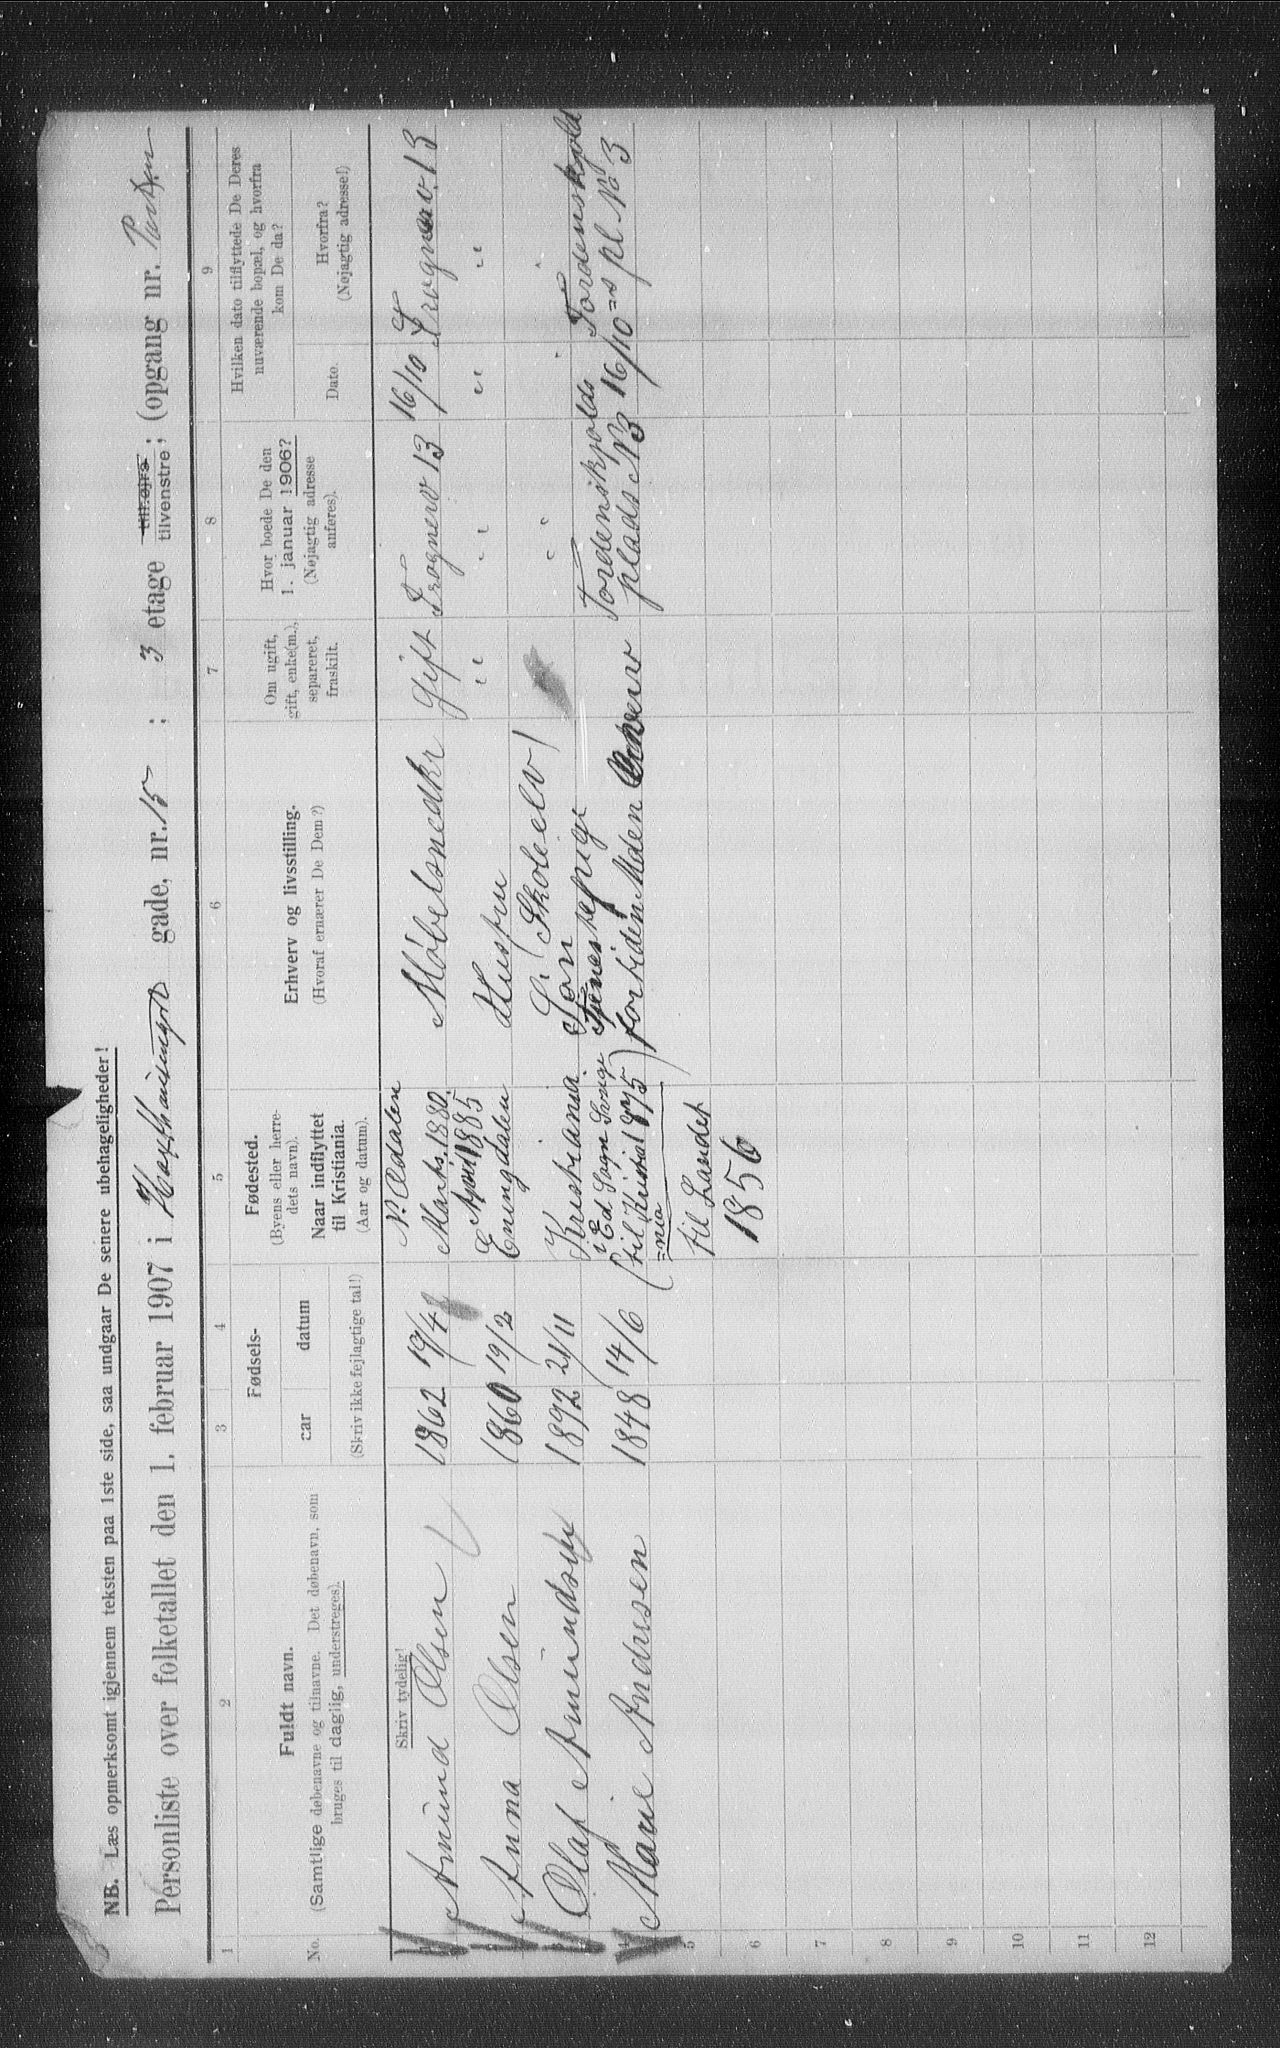 NB. Læs opmerksomt igjennem teksten paa 1ste side, saa undgaar De senere ubehageligheder!
Personliste over folketallet den 1. februar 1907 i gade, nr. 15 ; 3 etage tilhøjre tilvenstre; (opgang nr.
1 2 3 4 5 6 7 8 9
No.
Fuldt navn.
(Samtlige døbenavne og tilnavne. Det døbenavn, som
bruges til daglig, understreges).
Fødsels-
aar datum
(Skriv ikke fejlagtige tal!)
Fødested.
(Byens eller herre-
dets navn).
Naar indflyttet
til Kristiania.
(Aar og datum).
Erhverv og livsstilling.
(Hvoraf ernærer De Dem?)
Om ugift,
gift, enke(m.),
separeret,
fraskilt.
Hvor boede De den
1. januar 1906?
(Nøjagtig adresse
anføres).
Hvilken dato tilflyttede De Deres
nuværende bopæl, og hvorfra
kom De da?
Dato.
Hvorfra?
(Nøjagtig adresse!)
Skriv tydelig!
Amund Olsen 1862 19/4 N. Odalen Marts 1880 Møbelsnedkr gift Frognerv 13 16/10 Frognerv. 13
Anna Olsen 1860 19/2 April 1885 Eningdalen Hustru " " " "
Olaf Amundsen 1892 21/11 Kristiania Søn (Skoleelv)
Marie Andersen 1848 14/6 i Ed Sogn Sverige (til Kristia=nia 1875) Tjenestepige for tiden uden Tordenskjolds plads N 3 16/10 Tordenskjold=s pl. No 3
til Landet
1856
5
6
7
8
9
10
11
12